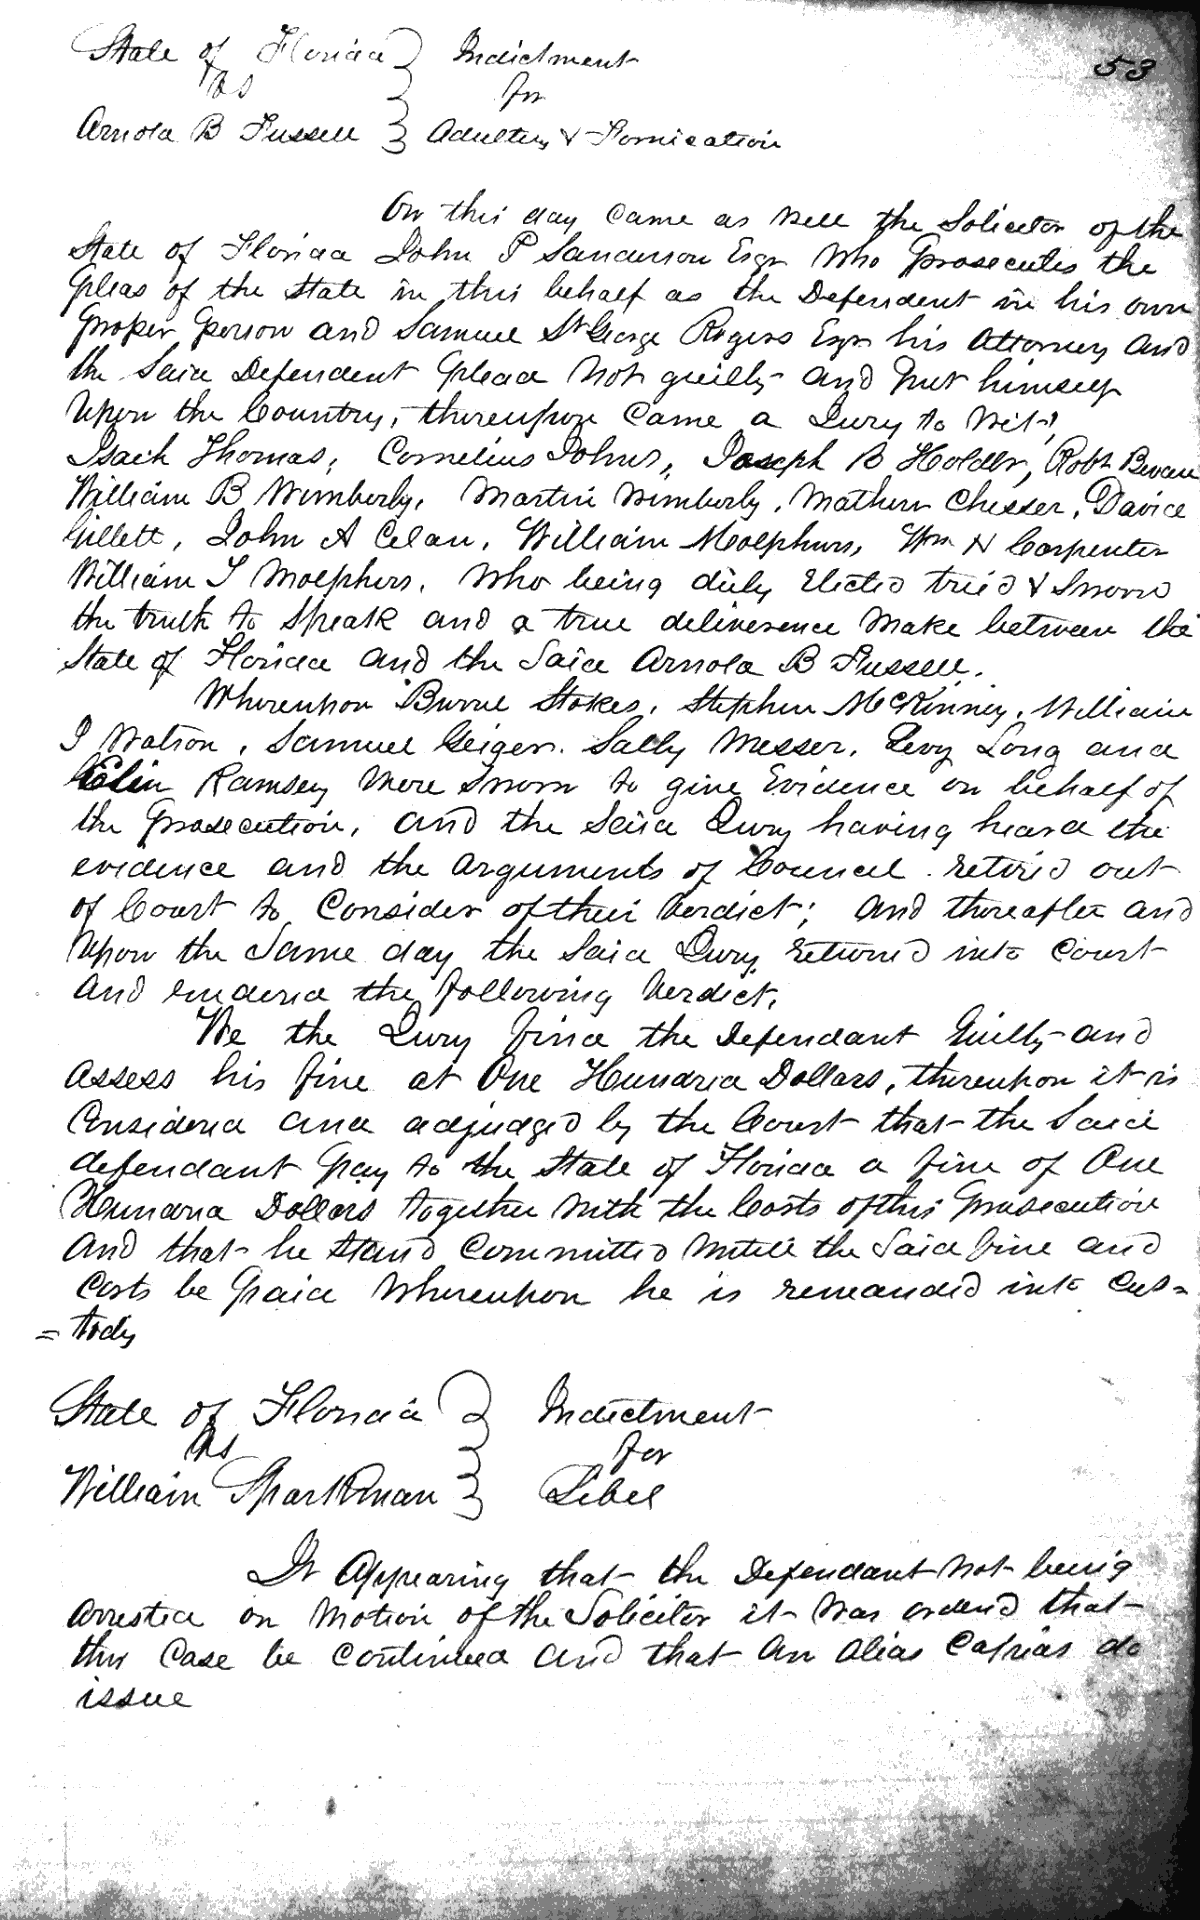 53
State of Florida } Indictment
vs } for
Arnold B Fussell } Adultery & Fornication
On this day came as well the Solicitor of the
State of Florida John P Sanderson Esqr who prosecutes the
pleas of the State in this behalf as the Defendent in his own
proper person and Samuel St George Rogers Esqr his Attorney and
the said Defendent plead not guilty and put himself
upon the Country, thereupon came a Jury to wit,
Isach Thomas, Cornelius Johns, Joseph B Holder, Robt Bevan
William B Wimberly, Martin Wimberly, Mathew Chesser, David
Gillett, John A William Molphurs, Wm H Carpenter
William T Molphurs. Who being duly Elected tried & Sworn
the truth to speak and a true deliverence make between the
State of Florida and the said Arnold B Fussell.
Whereupon Burrel Stokes, Stephen McKinney, William
I Watson, Samuel Geiger. Sally Messer, Levy Long and
Ramsey were sworn to give Evidence on behalf of
the prosecution, and the said Jury having heard the
evidence and the arguments of Council retired out
of Court to Consider of their verdict; and thereafter and
upon the same day the said Jury returned into Court
and rendered the following Verdict.
We the Jury find the Defendant Guilty and
assess his fine at One Hundred Dollars, thereupon it is
Considered and adjudged by the Court that the said
defendant pay to the State of Florida a fine of One
Hundred Dollars together with the Costs of this prosecution
and that he stand committed untill the said fine and
costs be paid whereupon he is remanded into Cus=
=tody
State of Florida } Indictment
vs } for
William Sparkman } Libel
It appearing that the Defendant not being
arrested on motion of the Solicitor it was ordered that
this case be continued and that an alias Capias do
issue